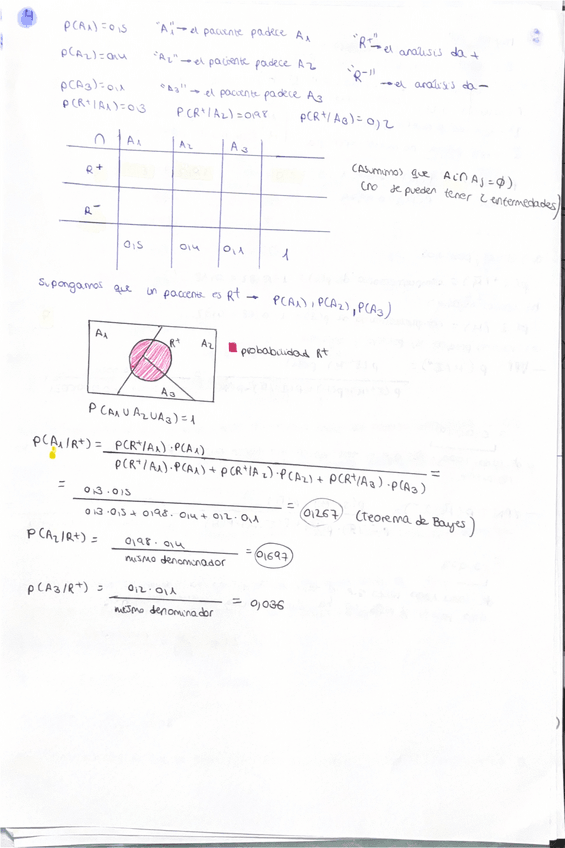 4
P(A1)=0,5 "A1"→el paciente padece A1 "R+"→el análisis da +
P(A2)=0,4 "A2"→el paciente padece A2 "R-"→el análisis da -
P(A3)=0,1 "A3"→el paciente padece A3
P(R+/A1)=0,3 P(R+/A2)=0,98 P(R+/A3)=0,2
∩ A1 A2 A3
R+
R-
0,5 0,4 0,1 1
(Asumimos que Ai∩Aj=∅)
(no se pueden tener 2 enfermedades)
Supongamos que un paciente es R+ → P(A1), P(A2), P(A3)
A1 R+ A2
A3
probabilidad R+
P(A1∪A2∪A3)=1
P(A1/R+) = P(R+/A1)·P(A1)
P(R+/A1)·P(A1) + P(R+/A2)·P(A2) + P(R+/A3)·P(A3) =
= 0,3·0,5
0,3·0,5 + 0,98·0,4 + 0,2·0,1 = 0,267 (Teorema de Bayes)
P(A2/R+) = 0,98·0,4
mismo denominador = 0,697
P(A3/R+) = 0,2·0,1
mismo denominador = 0,036